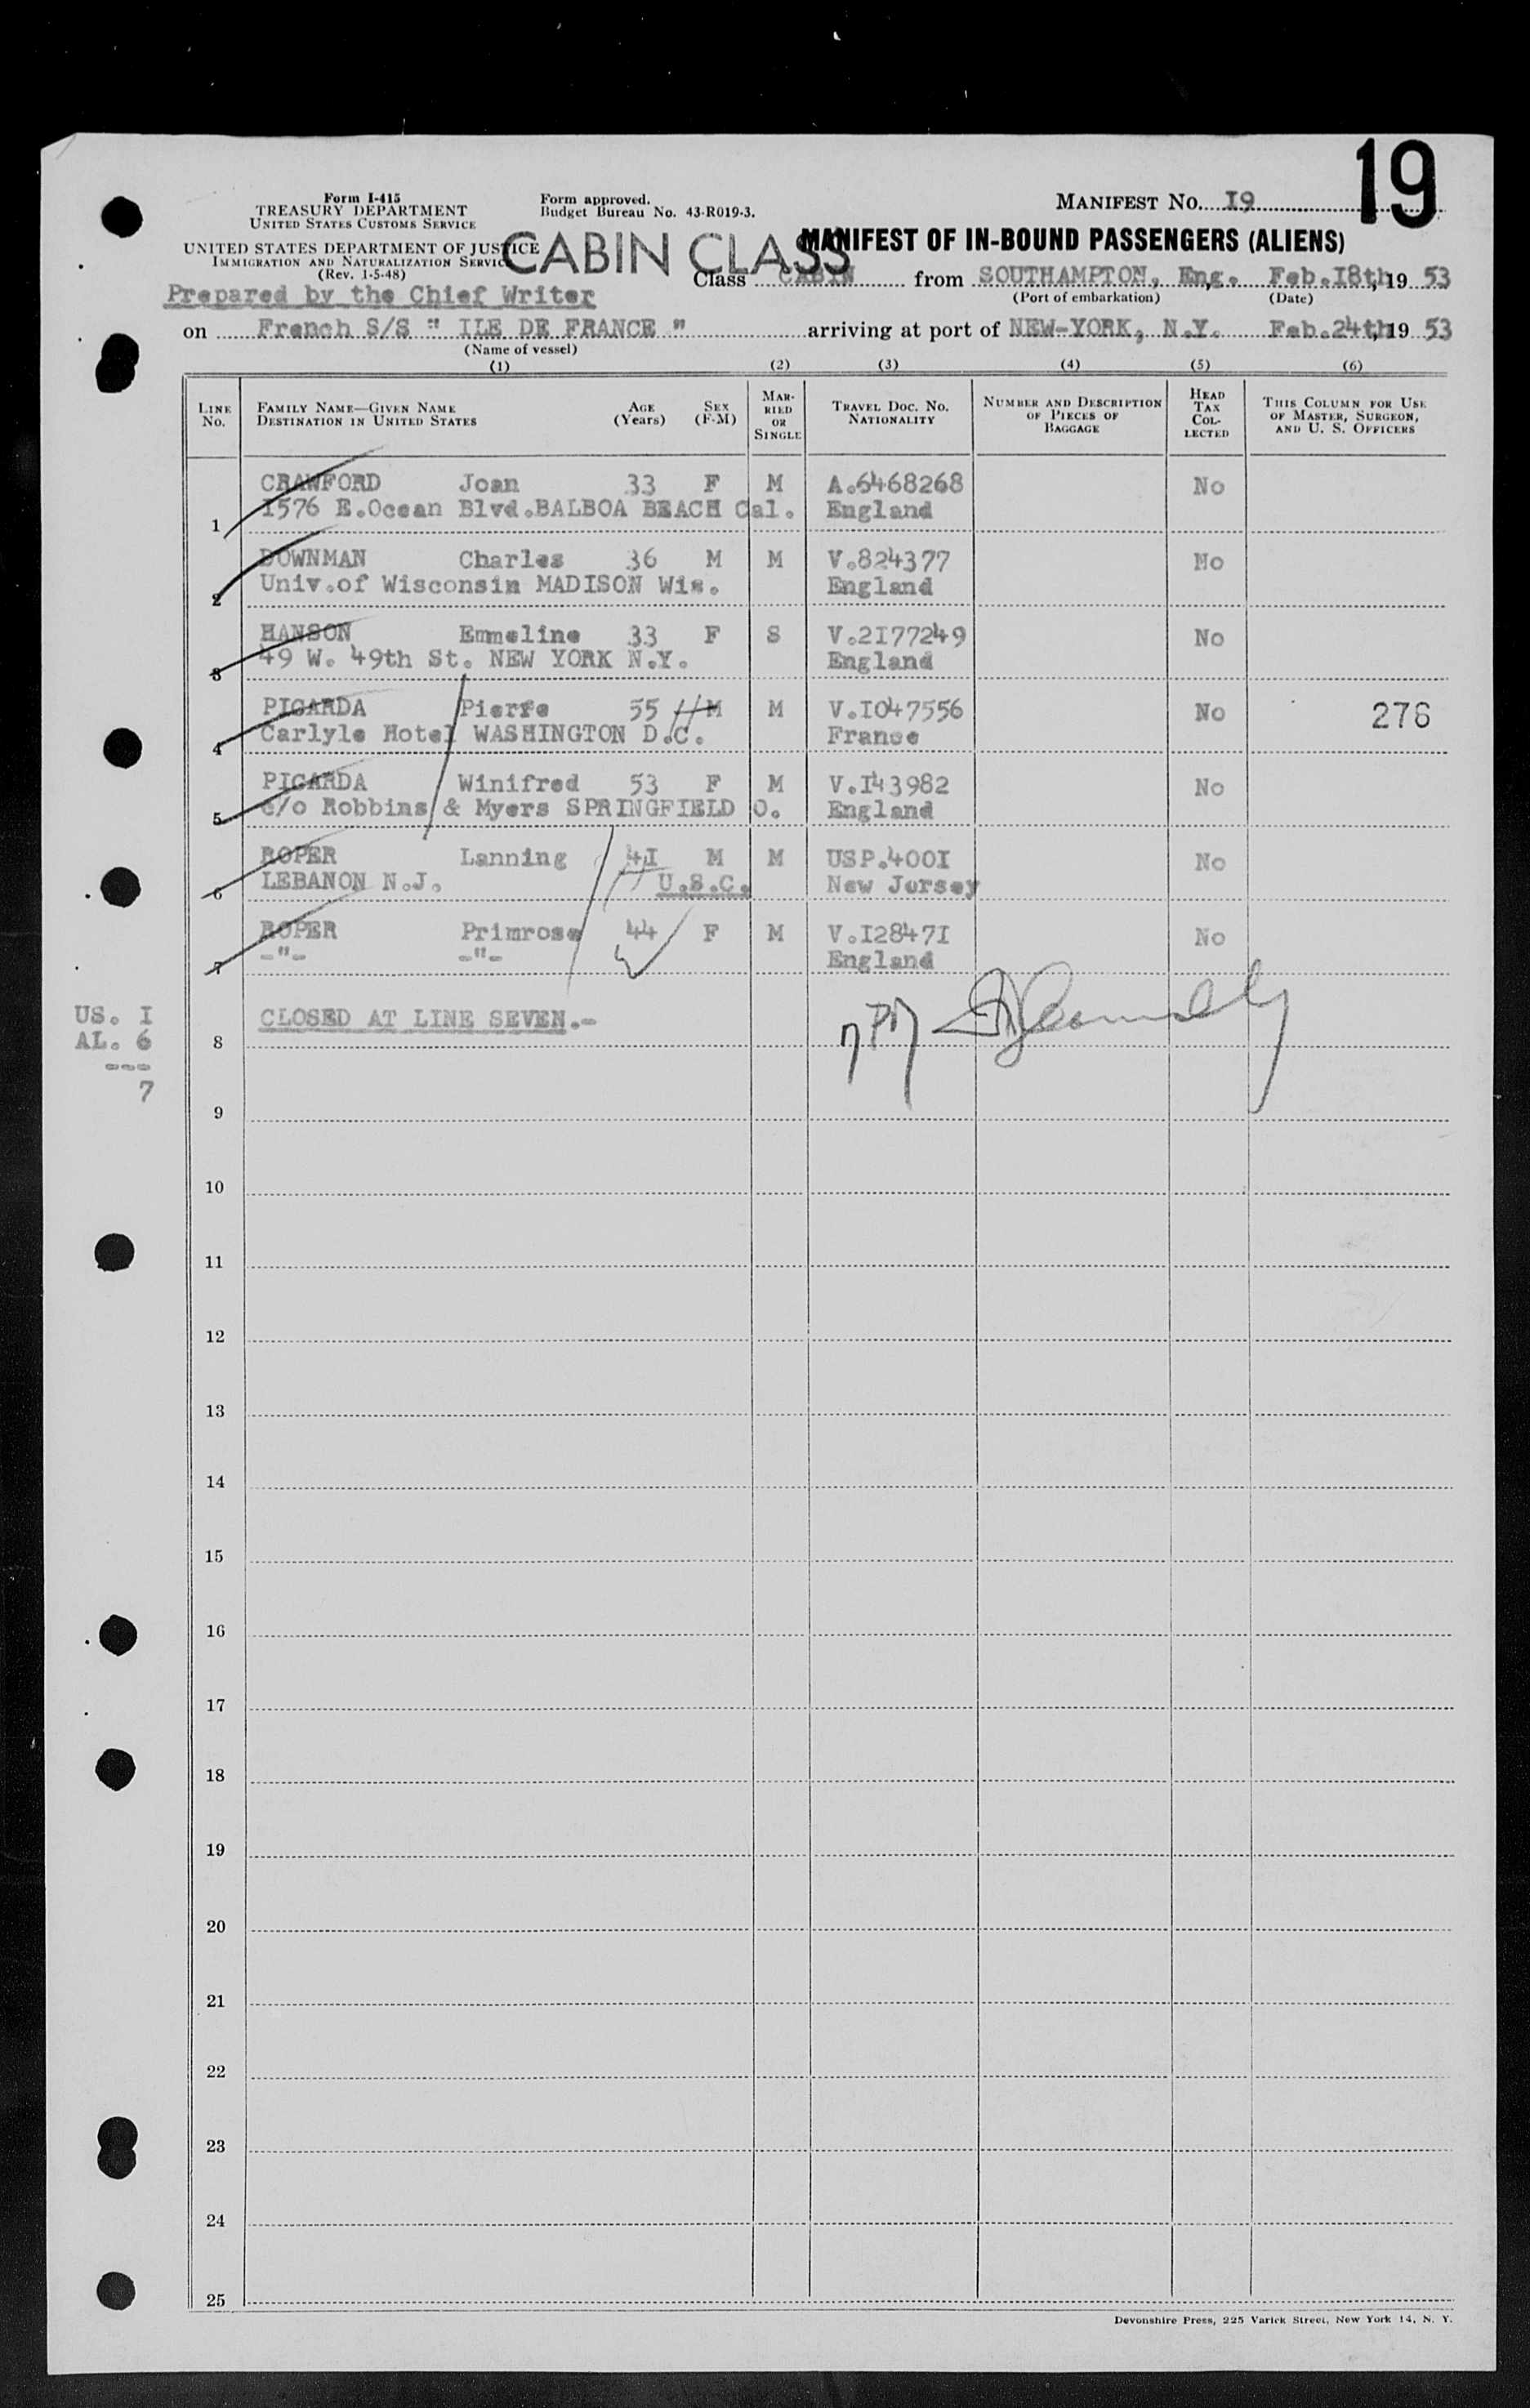 19
Form I-415
TREASURY DEPARTMENT
UNITED STATES CUSTOMS SERVICE
Form approved.
Budget Bureau No. 43-R019-3.
MANIFEST No. I9
UNITED STATES DEPARTMENT OF JUSTICE
IMMIGRATION AND NATURALIZATION SERVICE
(Rev. 1-5-48)
CABIN CLASS
MANIFEST OF IN-BOUND PASSENGERS (ALIENS)
Prepared by the Chief Writer
Class CABIN from SOUTHAMPTON, Eng. Feb.I8th, 19 53
(Port of embarkation) (Date)
on French S/S " ILE DE FRANCE " arriving at port of NEW-YORK, N.Y. Feb.24th, 19 53
(Name of vessel)
(1) (2) (3) (4) (5) (6)
LINE No. FAMILY NAME—GIVEN NAME DESTINATION IN UNITED STATES AGE (Years) SEX (F-M) MARRIED OR SINGLE TRAVEL DOC. NO. NATIONALITY NUMBER AND DESCRIPTION OF PIECES OF BAGGAGE HEAD TAX COLLECTED THIS COLUMN FOR USE OF MASTER, SURGEON, AND U. S. OFFICERS
CRAWFORD Joan 33 F M A.6468268 No
1 I576 E.Ocean Blvd.BALBOA BEACH Cal. England
DOWNMAN Charles 36 M M V.824377 No
2 Univ.of Wisconsin MADISON Wis. England
HANSON Emmeline 33 F S V.2I77249 No
3 49 W. 49th St. NEW YORK N.Y. England
PIGARDA Pierre 55 M M V.I047556 No 276
4 Carlyle Hotel WASHINGTON D.C. France
PIGARDA Winifred 53 F M V.I43982 No
5 c/o Robbins & Myers SPRINGFIELD O. England
ROPER Lanning 4I M M USP.400I No
6 LEBANON N.J. U.S.C. New Jersey
ROPER Primrose 44 F M V.I2847I No
7 -"- -"- England
US. I
AL. 6
---
7
8 CLOSED AT LINE SEVEN.-
9
10
11
12
13
14
15
16
17
18
19
20
21
22
23
24
25
Devonshire Press, 225 Varick Street, New York 14, N. Y.